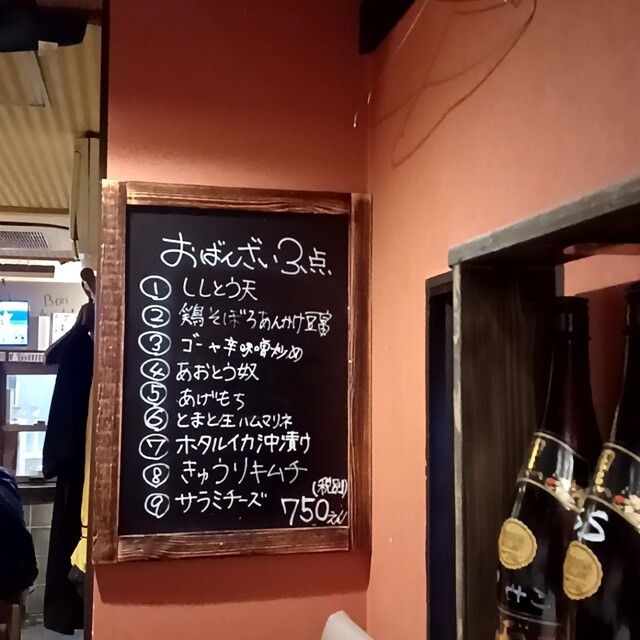 おばんざい3点
① ししとう天
② 鶏そぼろあんかけ豆富
③ ゴーヤ辛味噌炒め
④ あおとう奴
⑤ あげもち
⑥ とまと生ハムマリネ
⑦ ホタルイカ沖漬け
⑧ きゅうりキムチ
⑨ サラミチーズ
(税別)
750えん
Bon